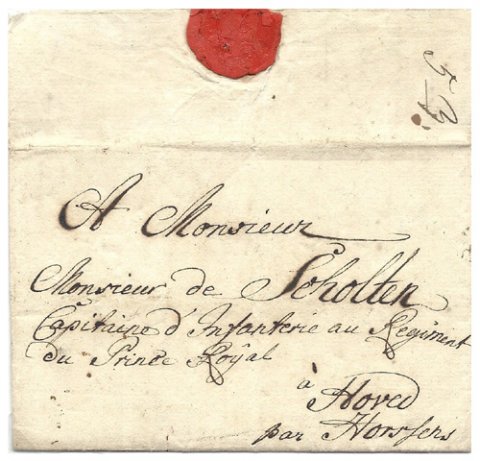 A Monsieur
Monsieur de Scholten
Capitaine d'Infanterie au Regiment
du Prince Royal
à Hoved
par Horssens